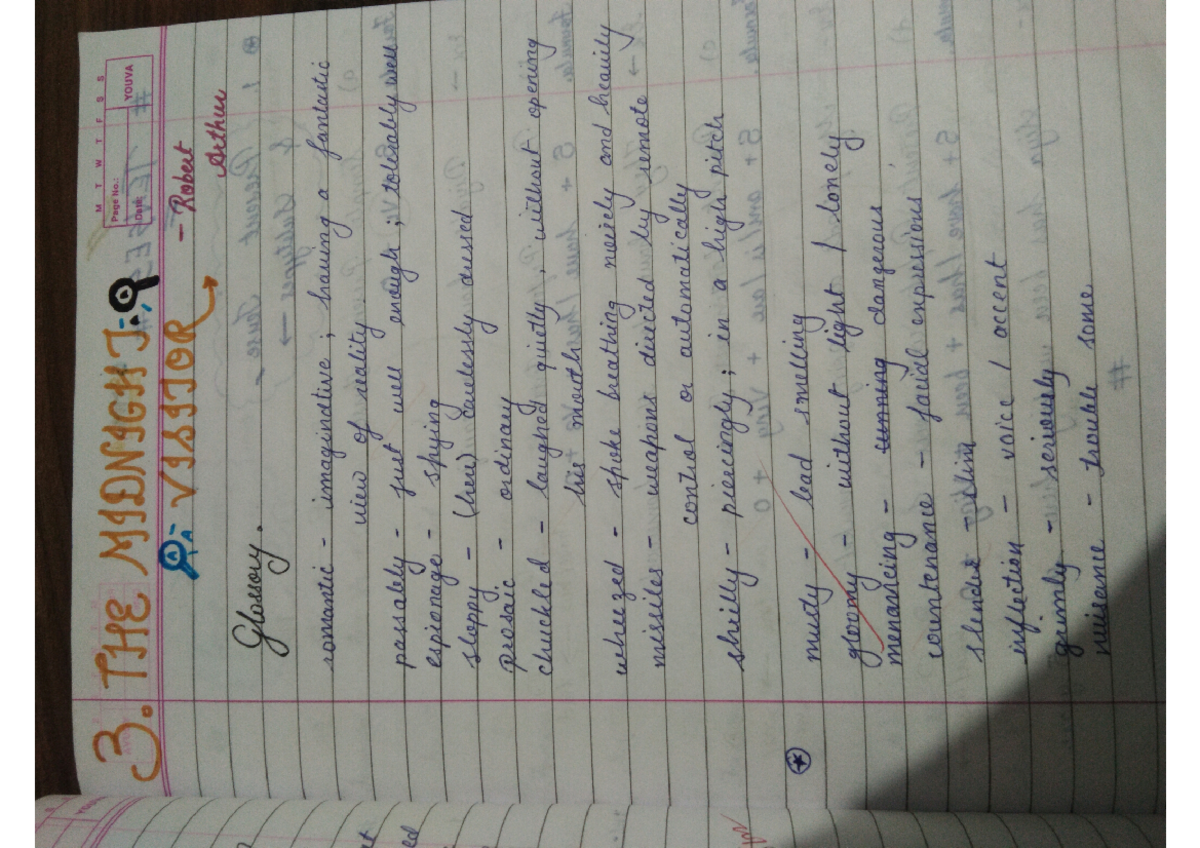 M T W T F S S
Page No.:
Date:
YOUVA
3. THE MIDNIGHT
VISITOR
- Robert
Arthur
Glossory.
romantic - imaginative ; having a fantastic
view of reality
passably - just well enough ; tolerably well
espionage - spying
sloppy - (here) carelessly dressed
prosaic - ordinary
chuckled - laughed quietly, without opening
his mouth
wheezed - spoke breathing noisely and heavily
missiles - weapons directed by remote
control or automatically
shrilly - piercingly ; in a high pitch
musty - bad smelling
gloomy - without light / lonely
menancing - dangerous
countenance - facial expressions
slender - slim
inflection - voice / accent
grimly - seriously
nuisene - trouble some
#